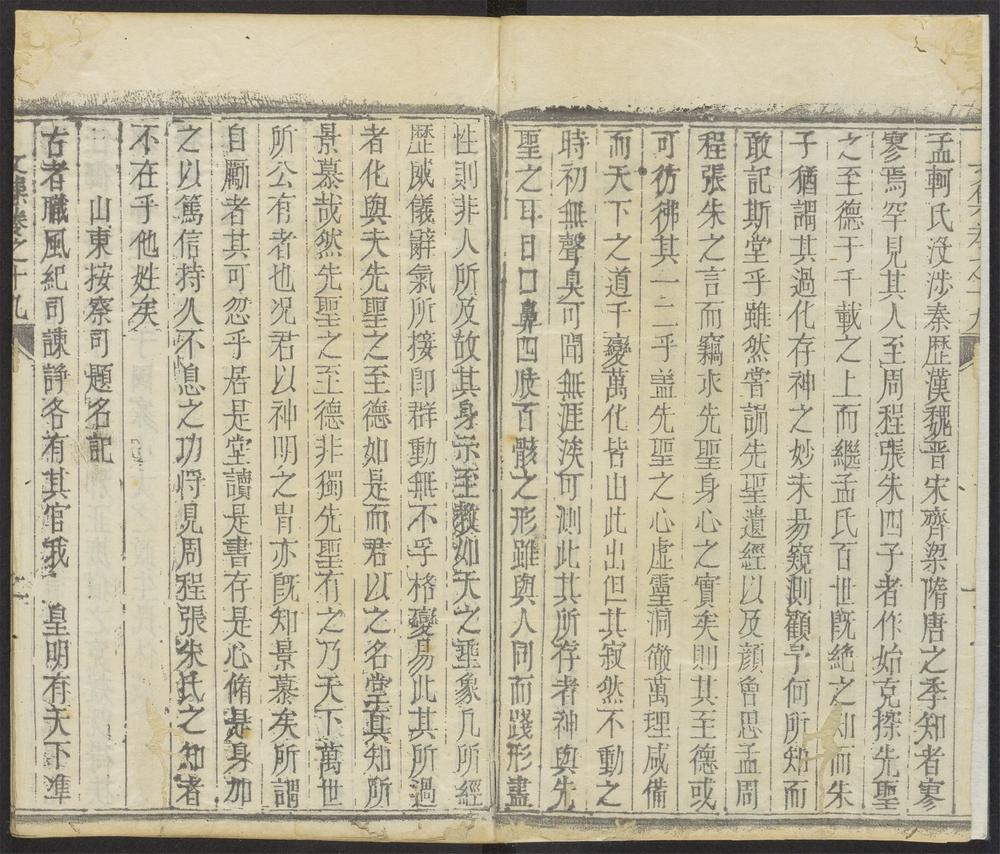 孟軻氏沒涉秦歷漢魏晋宋齊梁隋唐之季知者寥
寥焉罕見其人至周程張朱四子者作始克探先聖
之至德于千載之上而繼孟氏百世旣絶之知而朱
子猶謂其過化存神之妙未易窺測顧予何所知而
敢記斯堂乎雖然嘗謂先聖遺經以及顔曾思孟周
程張朱之言而竊求先聖身心之實矣則其至德或
可彷彿其一二乎盖先聖之心虛靈洞徹萬理咸備
而天下之道千變萬化皆由此出但其寂然不動之
時初無聲臭可聞無涯涘可測此其所存者神與先
聖之耳目口鼻四肢百骸之形雖與人同而踐形盡
性則非人所及故其身示至敎如天之垂象凡所經
歷威儀辭氣所接卽群動無不孚格變易此其所過
者化與夫先聖之至德如是而君以之名堂真知所
景慕哉然先聖之至德非獨先聖有之乃天下萬世
所公有者也况君以神明之胄亦旣知景慕矣所謂
自勵者其可忽乎居是堂讀是書存是心脩是身加
之以篤信持久不息之功将見周程張朱氏之知者
不在乎他姓矣
山東按察司題名記
古者職風紀司諫諍各有其官我 皇明有天下準
文集卷之十九